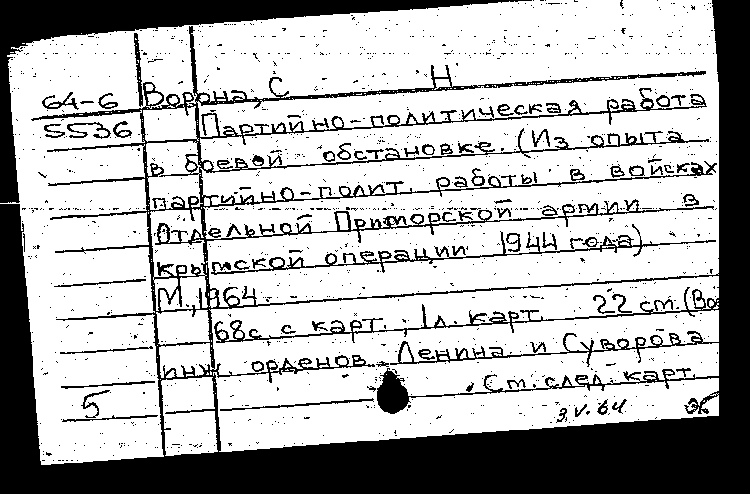 64-6 Ворона, С Н
5536 Партийно-политическая работа
в боевой обстановке. (Из опыта
партийно-полит. работы в войсках
Отдельной Приморской армии в
крымской операции 1944 года).
М., 1964.
68с. с карт.; 1л. карт. 22 см. (Во
инж. орденов Ленина и Суворова
5 . См. след. карт.
3.V.64